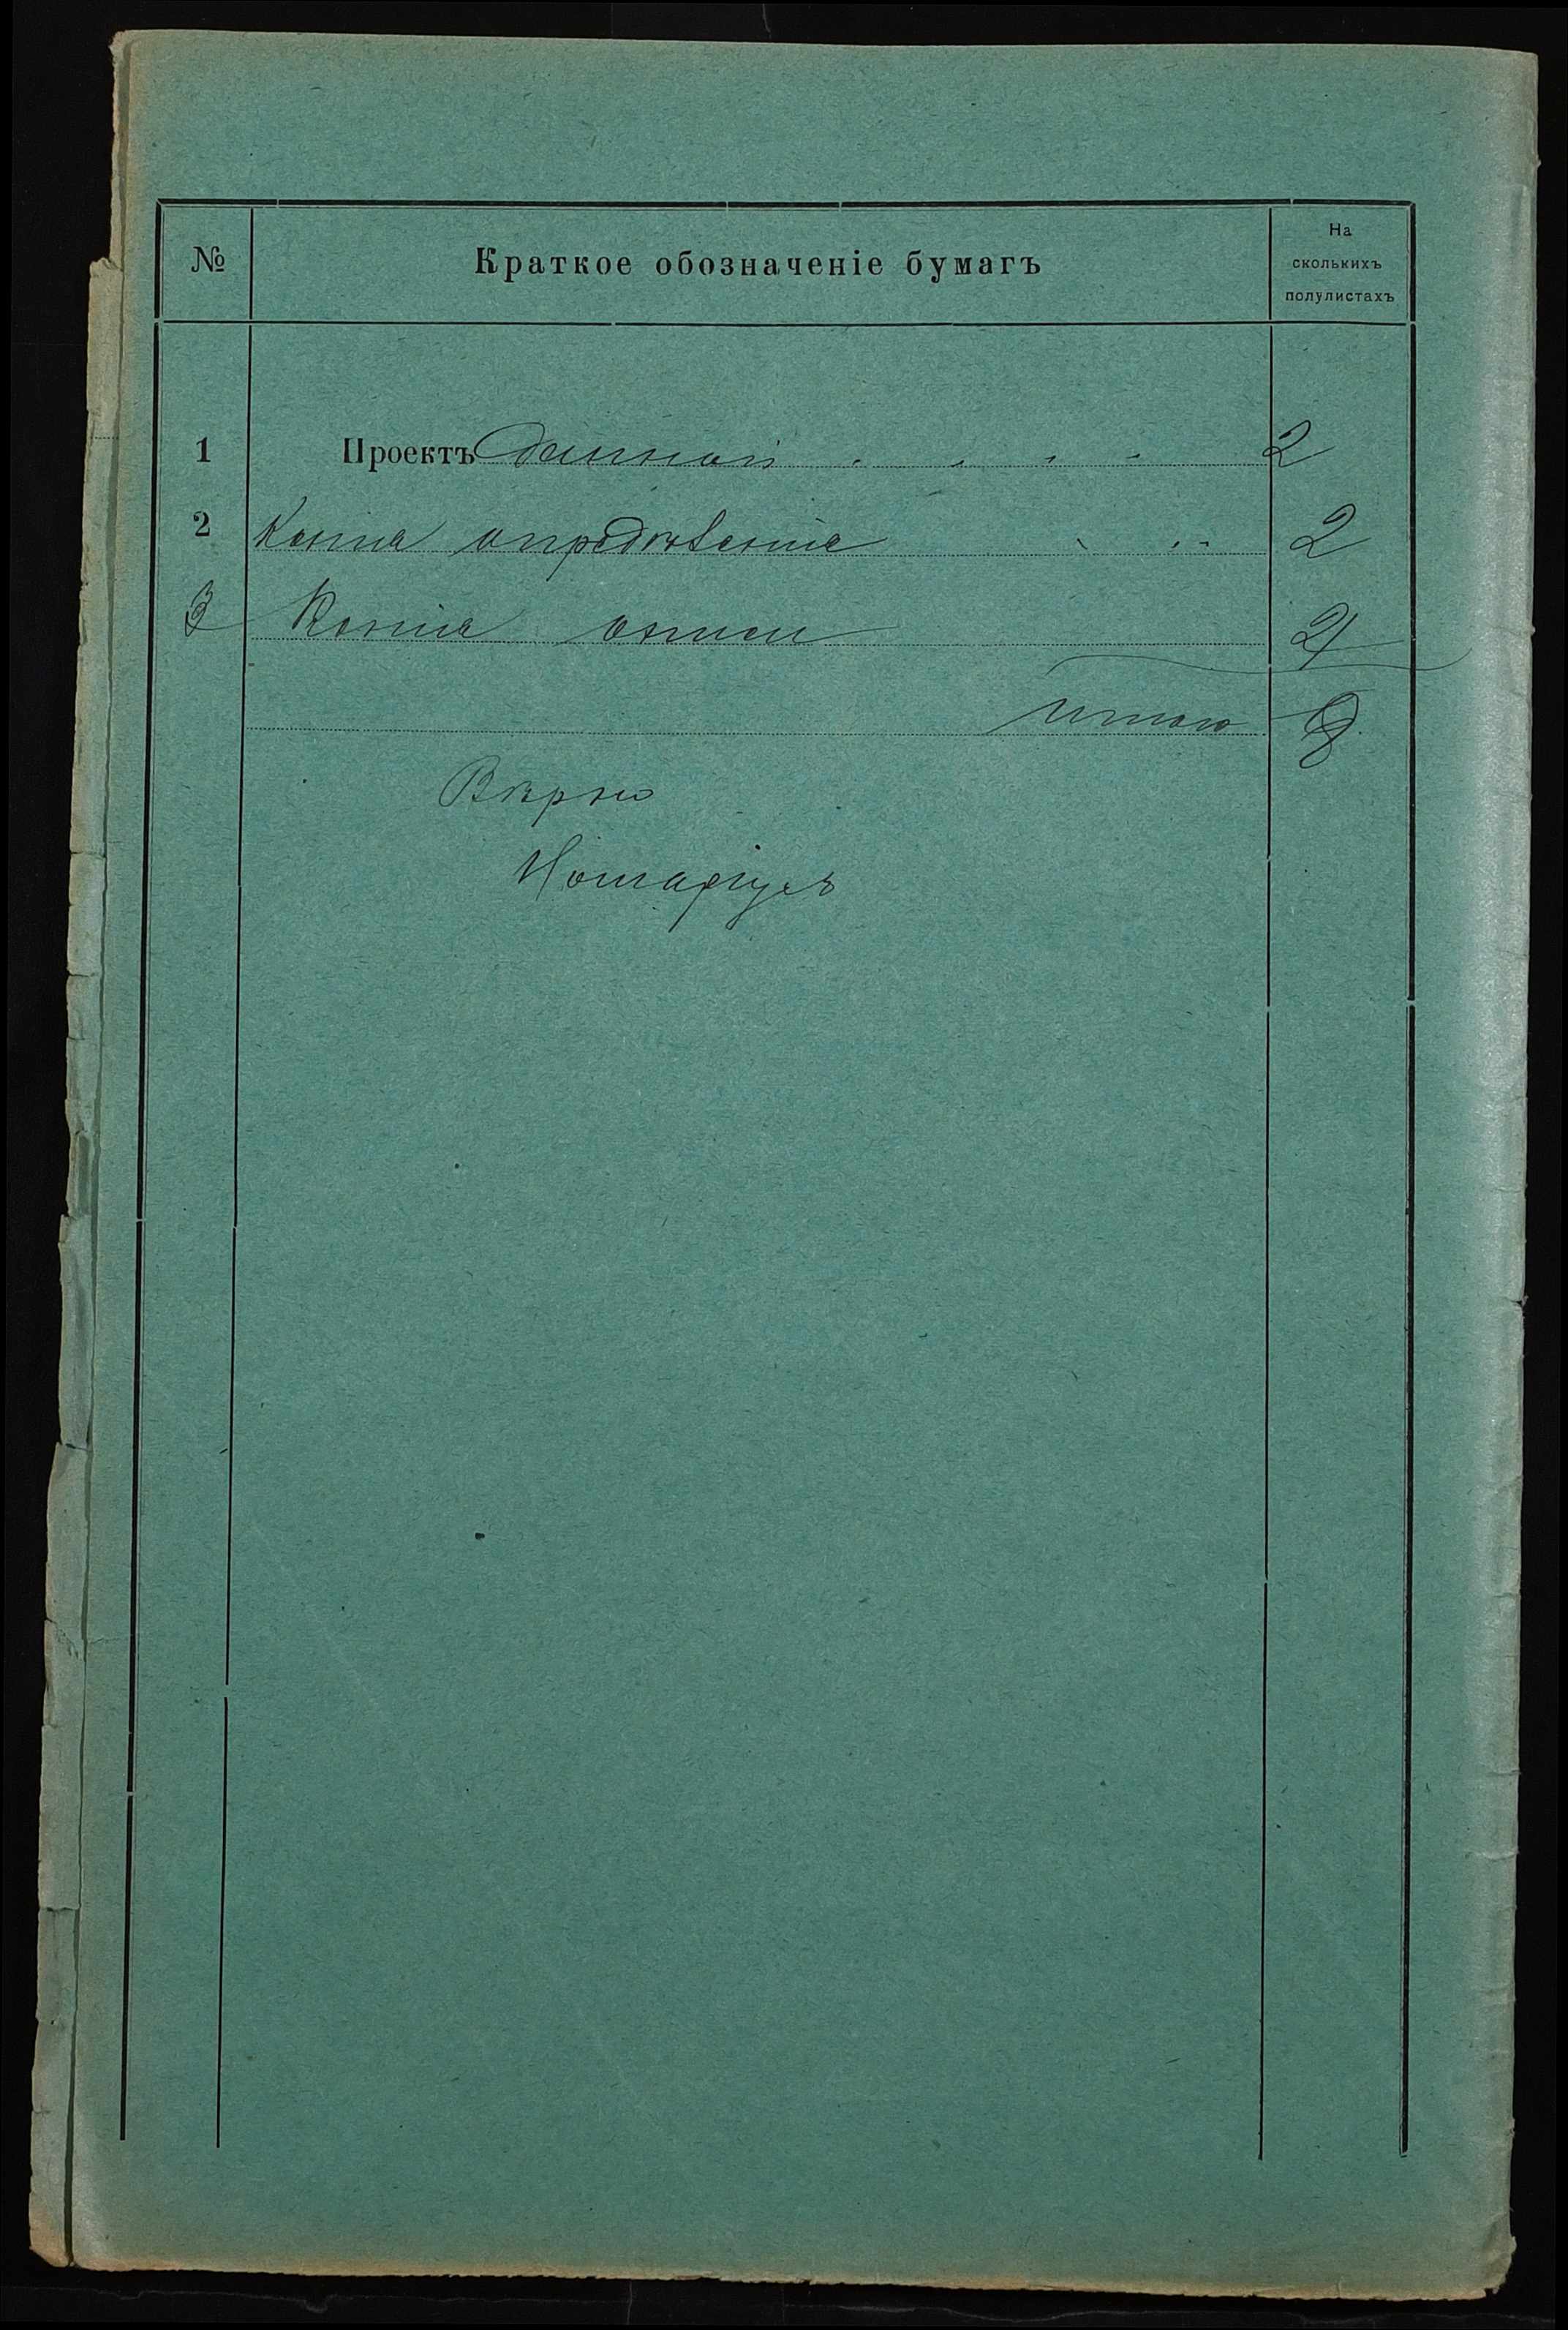 № Краткое обозначеніе бумагъ На
сколькихъ
полулистахъ
1 Проектъ данной 2
2 Копія опредѣленія 2
3 Копія описи 4
Итого 8
Вѣрно
Нотаріусъ